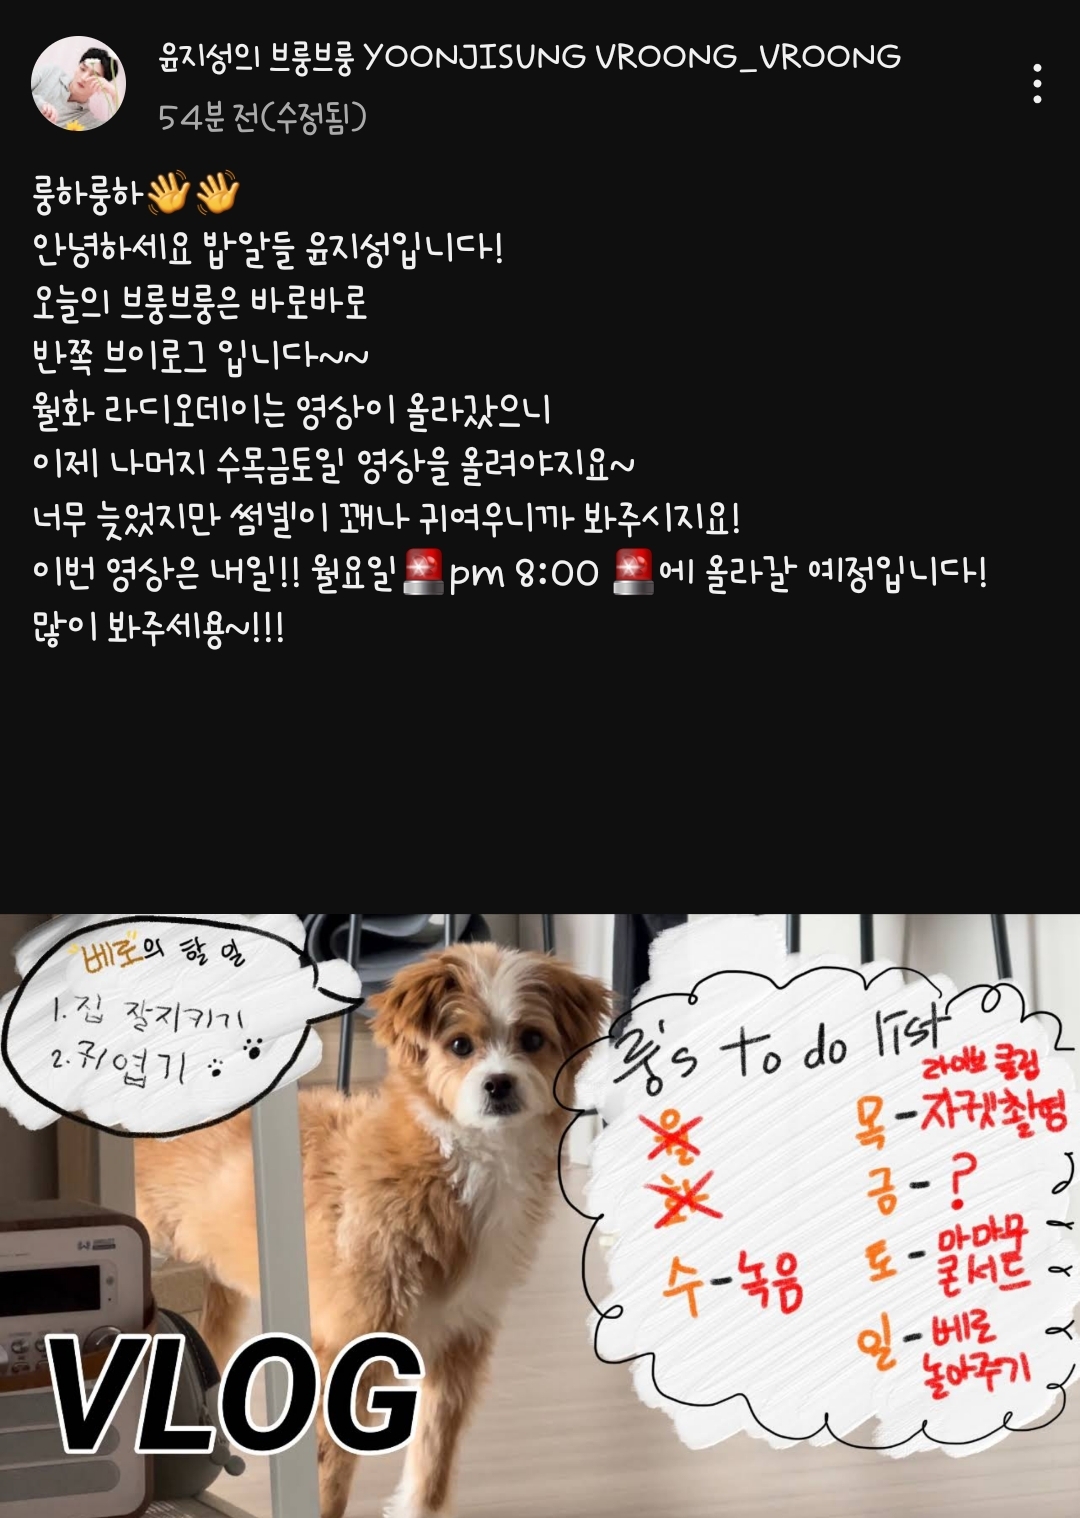 윤지성의 브룽브룽 YOONJISUNG VROONG_VROONG
54분 전(수정됨)
룽하룽하👋👋
안녕하세요 밥알들 윤지성입니다!
오늘의 브룽브룽은 바로바로
반쪽 브이로그 입니다~~
월화 라디오데이는 영상이 올라갔으니
이제 나머지 수목금토일 영상을 올려야지요~
너무 늦었지만 썸넬이 꽤나 귀여우니까 봐주시지요!
이번 영상은 내일!! 월요일🚨pm 8:00 🚨에 올라갈 예정입니다!
많이 봐주세용~!!!
"베로의 할 일
1. 집 잘지키기
2. 귀엽기
룽's to do list
월
화
수-녹음
라이브 클립
목-자켓촬영
금-?
토-마마무
콘서트
일-베로
놀아주기
VLOG